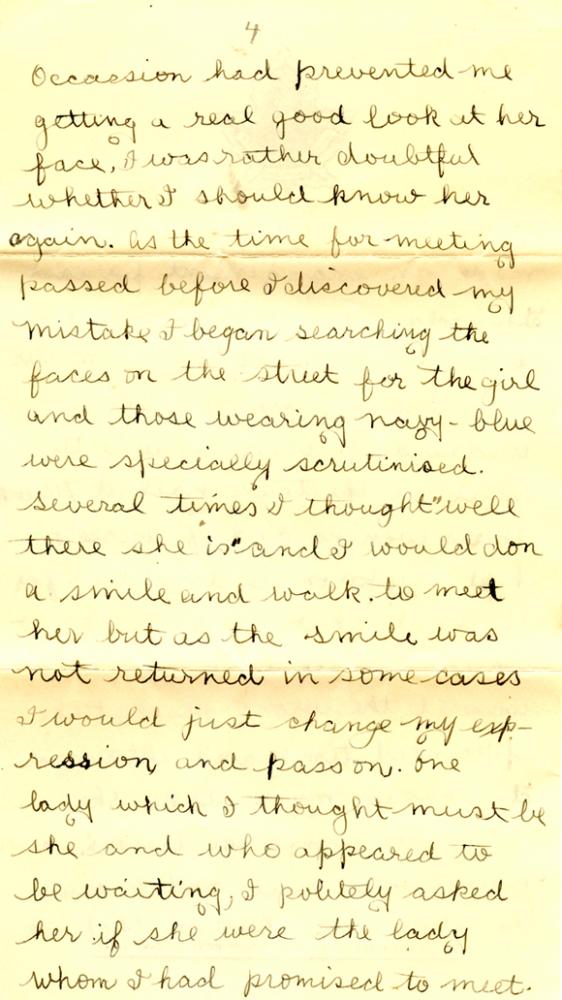 4
Occassion had prevented me
getting a real good look at her
face, I was rather doubtful
whether I should know her
again. As the time for meeting
passed before I discovered my
mistake I began searching the
faces on the street for the girl
and those wearing navy-blue
were specially scrutinised.
Several times I thought "well
there she is" and I would don
a smile and walk to meet
her but as the smile was
not returned in some cases
I would just change my exp-
ression and pass on. One
lady which I thought must be
she and who appeared to
be waiting, I politely asked
her if she were the lady
whom I had promised to meet.